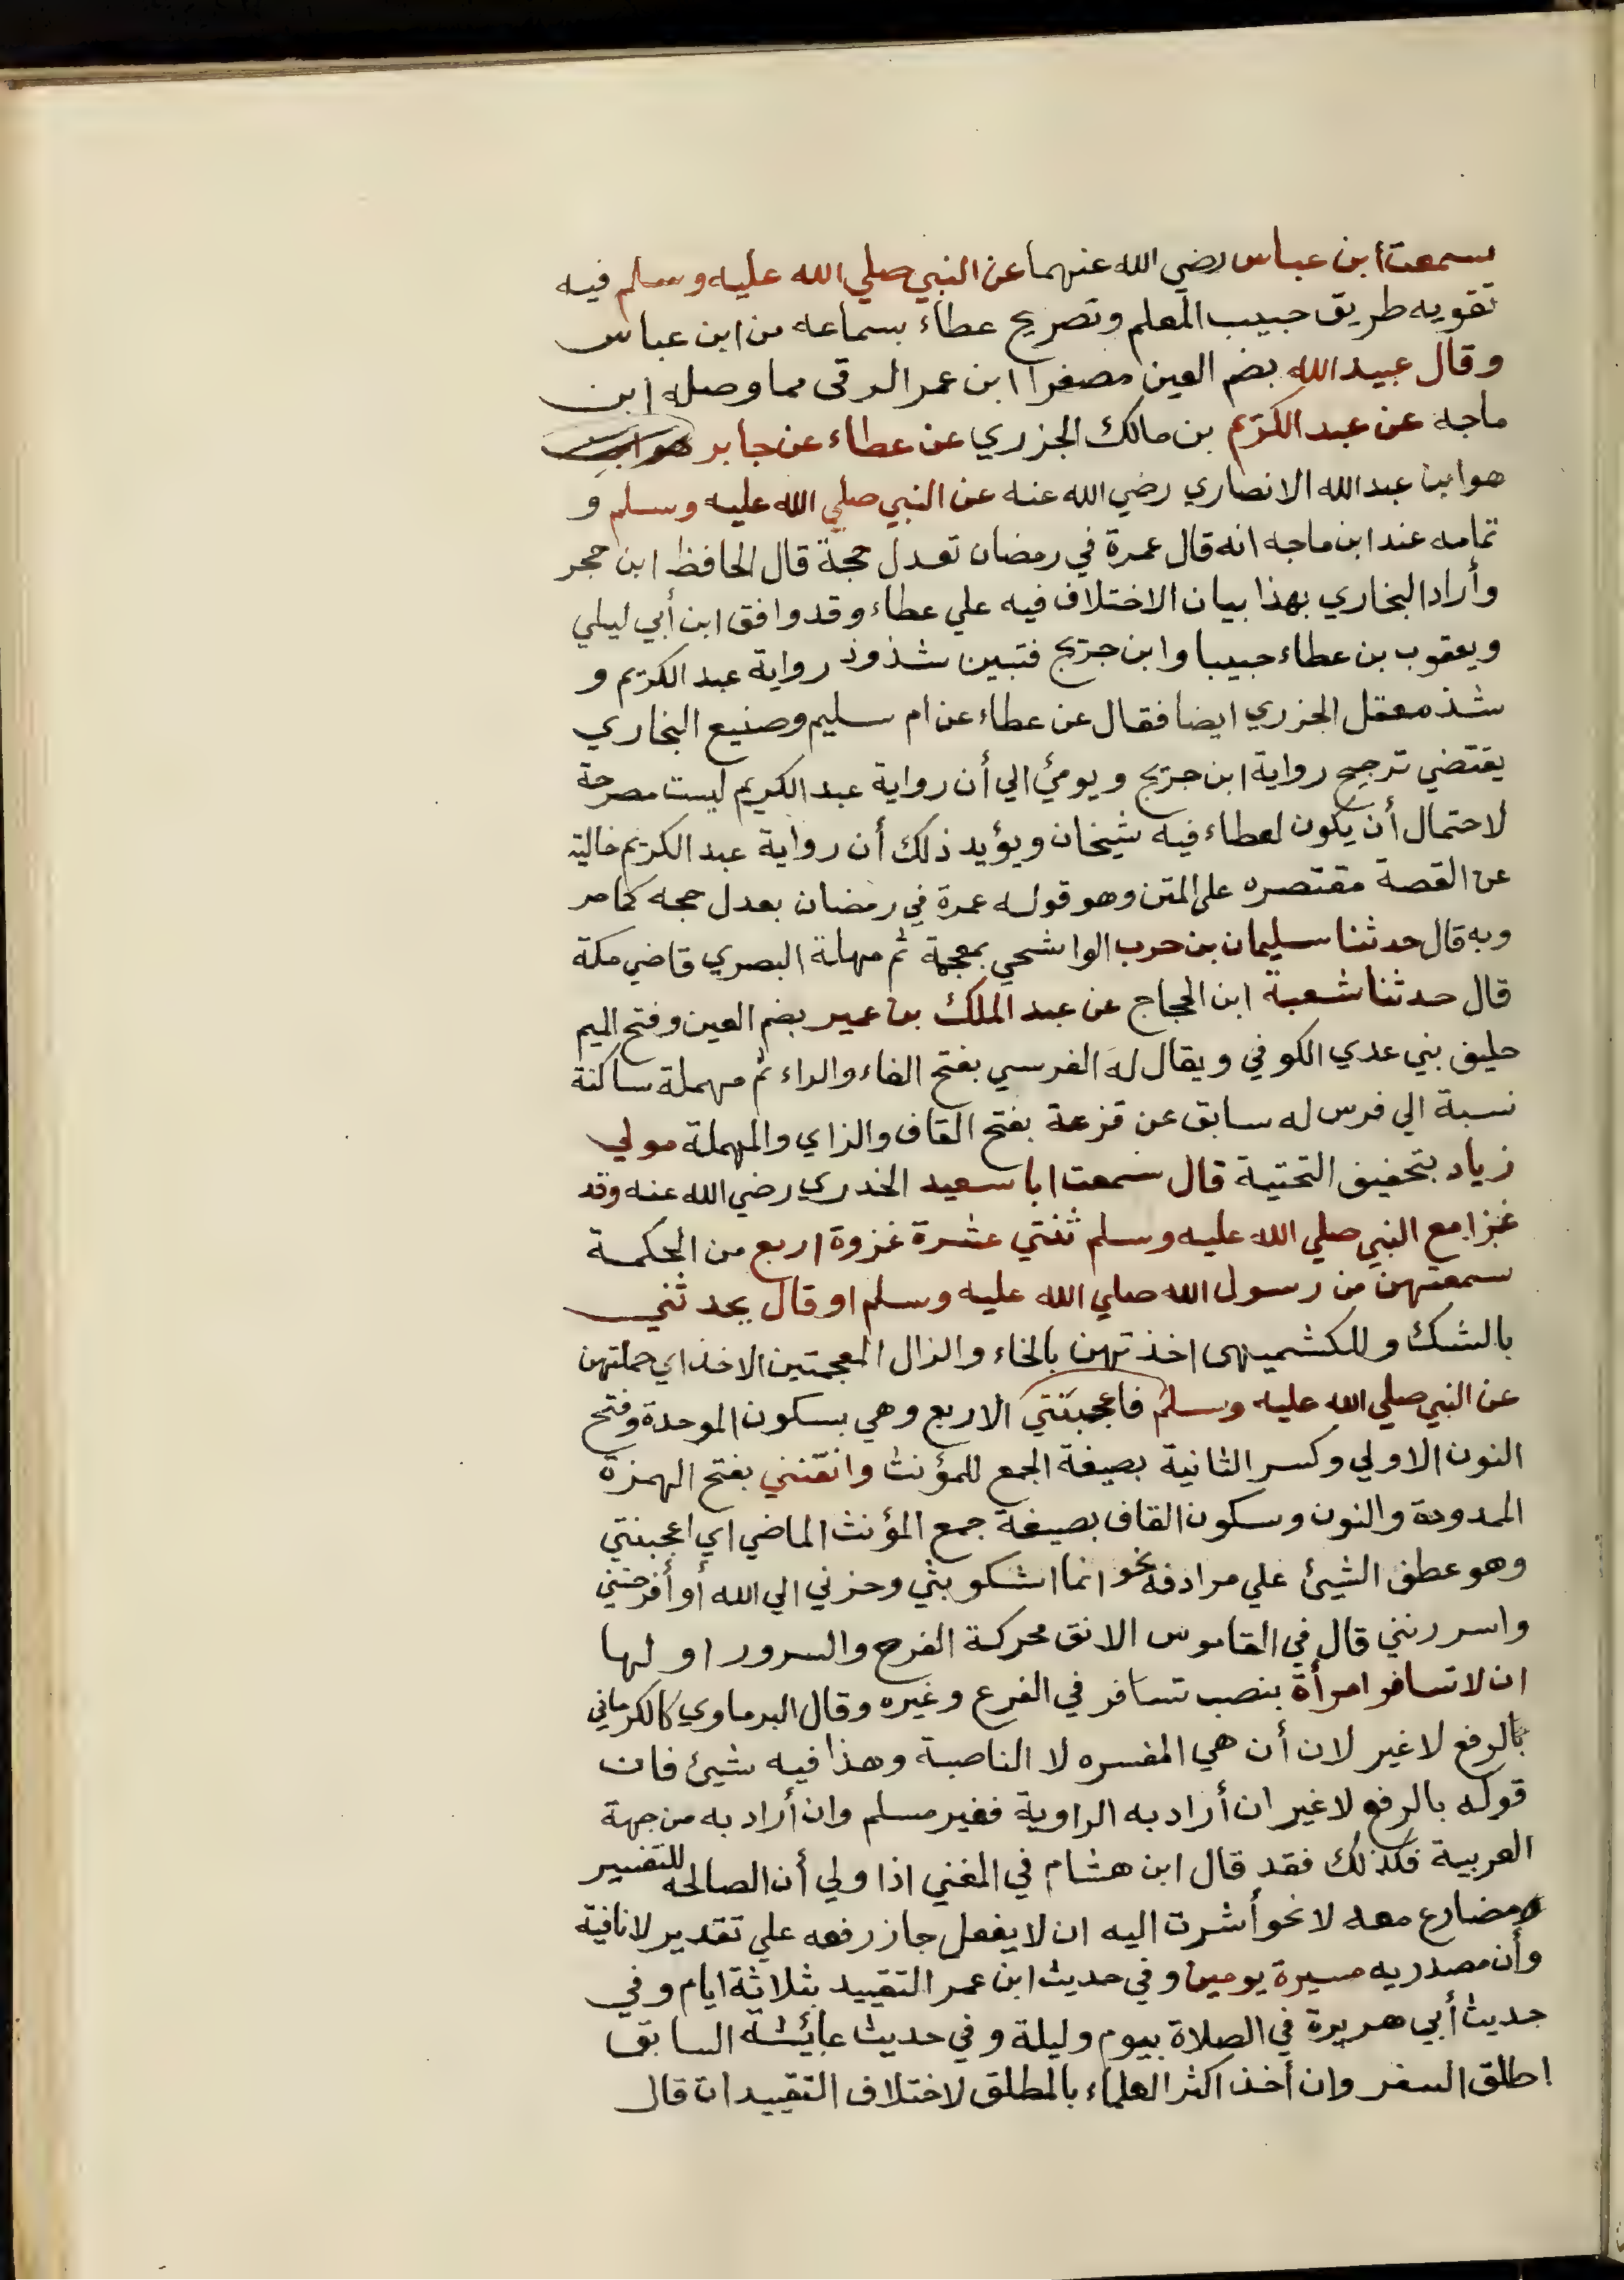 سمعت ابن عباس رضي الله عنهما عن النبي صلي الله عليه وسلم فيه
تقويه طريق حبيب المعلم وتصريح عطاء بسماعه من ابن عباس
وقال عبيد الله بضم العين مصغرا ابن عمر الرقى مما وصله ابن
ماجه عن عبد الكريم بن مالك الجزري عن عطاء عن جابر هو ابن
هو ابن عبد الله الانصاري رضي الله عنه عن النبي صلي الله عليه وسلم و
تمامه عند ابن ماجه انه قال عمرة في رمضان تعدل حجة قال الحافظ ابن حجر
وأراد البخاري بهذا بيان الاختلاف فيه علي عطاء وقد وافق ابن أبي ليلي
ويعقوب بن عطاء حبيبا وابن جريج فتبين شذوذ رواية عبد الكريم و
شذ معقل الجزري ايضا فقال عن عطاء عن ام سليم وصنيع البخاري
يقتضي ترجيح رواية ابن جريج ويومئ الي أن رواية عبد الكريم ليست مصرحة
لاحتمال أن يكون لعطاء فيه شيخان ويؤيد ذلك أن رواية عبد الكريم خالية
عن القصة مقتصره على المتن وهو قوله عمرة في رمضان بعدل حجه كما مر
وبه قال حدثنا سليمان بن حرب الواشحي بمعجمة ثم مهملة البصري قاضي مكة
قال حدثنا شعبة ابن الحجاج عن عبد الملك بن عمير بضم العين وفتح الميم
حليف بني عدي الكوفي ويقال له الفرسي بفتح الفاء والراء ثم مهملة ساكنة
نسبة الي فرس له سابق عن قزعة بفتح القاف والزاي والمهملة مولي
زياد بتخفيف التحتية قال سمعت ابا سعيد الخدري رضي الله عنه وقد
غزا مع النبي صلي الله عليه وسلم ثنتي عشرة غزوة اربع من الحكمة
سمعتهن من رسول الله صلي الله عليه وسلم او قال يحدثني
بالشك وللكشميهى اخذتهن بالخاء والذال المعجمتين الاخذ اي حملتهن
عن النبي صلي الله عليه وسلم فاعجبنني الاربع وهي بسكون الموحدة وفتح
النون الاولي وكسر الثانية بصيغة الجمع للمؤنث وانقنني بفتح الهمزة
الممدودة والنون وسكون القاف بصيغة جمع المؤنث الماضي اي اعجبنني
وهو عطف الشيئ علي مرادفه نحو انما اشكو بثي وحزني الي الله أو أفرحنني
واسررنني قال في القاموس الانق محركة الفرح والسرور اولها
ان لا تسافر امرأة بنصب تسافر في الفرع وغيره وقال البرماوي كالكرماني
بالرفع لا غير لان أن هي المفسره لا الناصبة وهذا فيه شيئ فان
قوله بالرفع لا غير ان أراد به الراوية فغير مسلم وان أراد به من جهة
العربية فكذلك فقد قال ابن هشام في المغني اذا ولي أن الصالحه للتفسير
مضارع معه لا نحو أشرت اليه ان لا يفعل جاز رفعه علي تقدير لا نافية
وأن مصدريه مسيرة يومين وفي حديث ابن عمر التقييد بثلاثة ايام وفي
حديث أبي هريرة في الصلاة بيوم وليلة وفي حديث عائشه السابق
اطلق السفر وان أخذ اكثر العلماء بالمطلق لاختلاف التقييدات قال